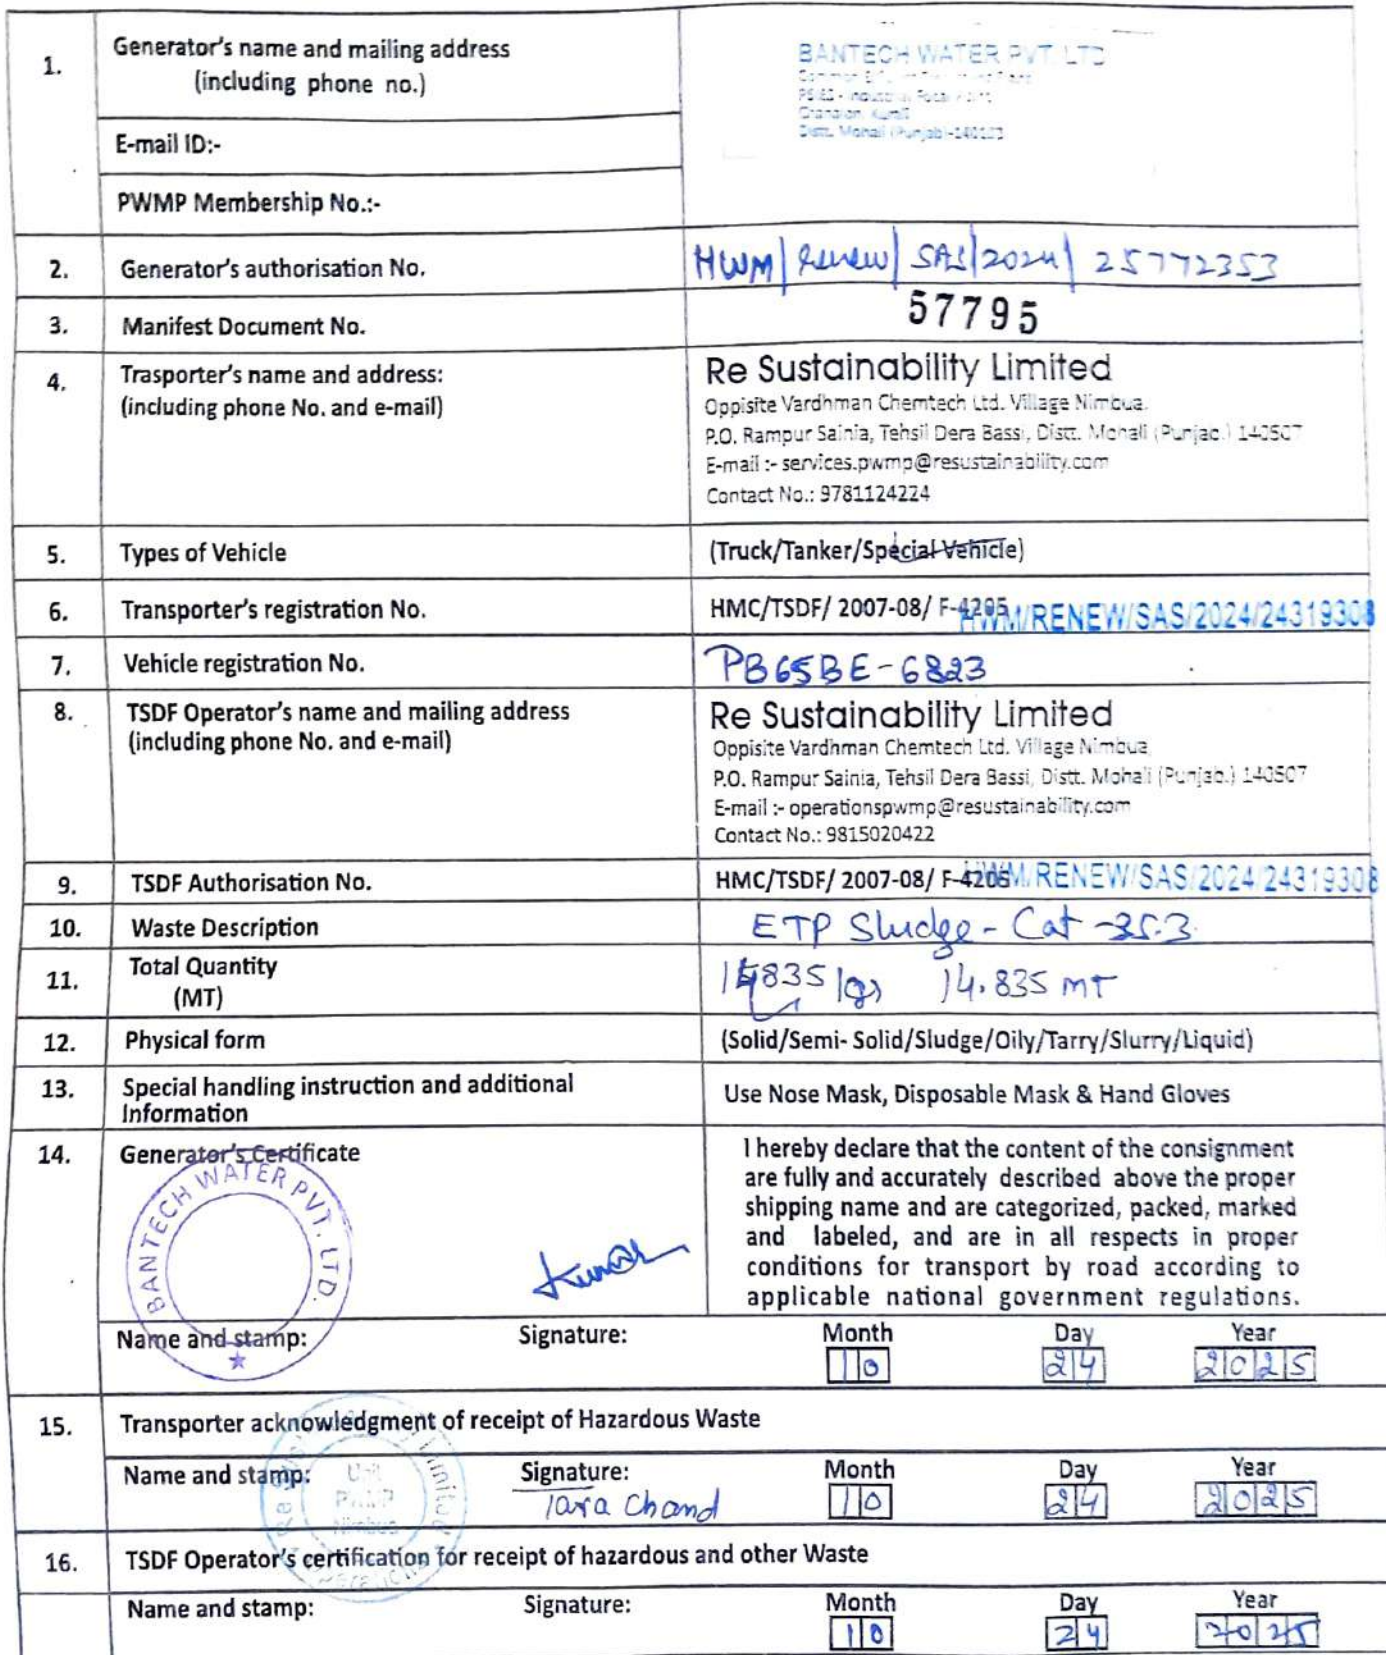 1.
Generator's name and mailing address
(including phone no.)
BANTECH WATER PVT. LTD
Distt. Mohali (Punjab)-140103
E-mail ID:-
PWMP Membership No.:-
2.
Generator's authorisation No.
HWM/Renew/SAS/2024/25772353
3.
Manifest Document No.
57795
4.
Trasporter's name and address:
(including phone No. and e-mail)
Re Sustainability Limited
Oppisite Vardhman Chemtech Ltd. Village Nimbua
P.O. Rampur Sainia, Tehsil Dera Bassi, Distt. Mohali (Punjab.) 140507
E-mail :- services.pwmp@resustainability.com
Contact No.: 9781124224
5.
Types of Vehicle
(Truck/Tanker/Special Vehicle)
6.
Transporter's registration No.
HMC/TSDF/ 2007-08/ F-4205
HWM/RENEW/SAS/2024/24319308
7.
Vehicle registration No.
PB65BE-6823
8.
TSDF Operator's name and mailing address
(including phone No. and e-mail)
Re Sustainability Limited
Oppisite Vardhman Chemtech Ltd. Village Nimbua
P.O. Rampur Sainia, Tehsil Dera Bassi, Distt. Mohali (Punjab.) 140507
E-mail :- operationspwmp@resustainability.com
Contact No.: 9815020422
9.
TSDF Authorisation No.
HMC/TSDF/ 2007-08/ F-4205
HWM/RENEW/SAS/2024/24319308
10.
Waste Description
ETP Sludge - Cat - 35.3
11.
Total Quantity
(MT)
14835 kgs 14.835 MT
12.
Physical form
(Solid/Semi- Solid/Sludge/Oily/Tarry/Slurry/Liquid)
13.
Special handling instruction and additional
Information
Use Nose Mask, Disposable Mask & Hand Gloves
14.
Generator's Certificate
BANTECH WATER PVT. LTD.
I hereby declare that the content of the consignment
are fully and accurately described above the proper
shipping name and are categorized, packed, marked
and labeled, and are in all respects in proper
conditions for transport by road according to
applicable national government regulations.
Name and stamp:
Signature:
Month Day Year
10 24 2025
15.
Transporter acknowledgment of receipt of Hazardous Waste
Name and stamp:
Unit
PWMP
Nimbua
Signature:
Tara Chand
Month Day Year
10 24 2025
16.
TSDF Operator's certification for receipt of hazardous and other Waste
Name and stamp:
Signature:
Month Day Year
10 24 2025